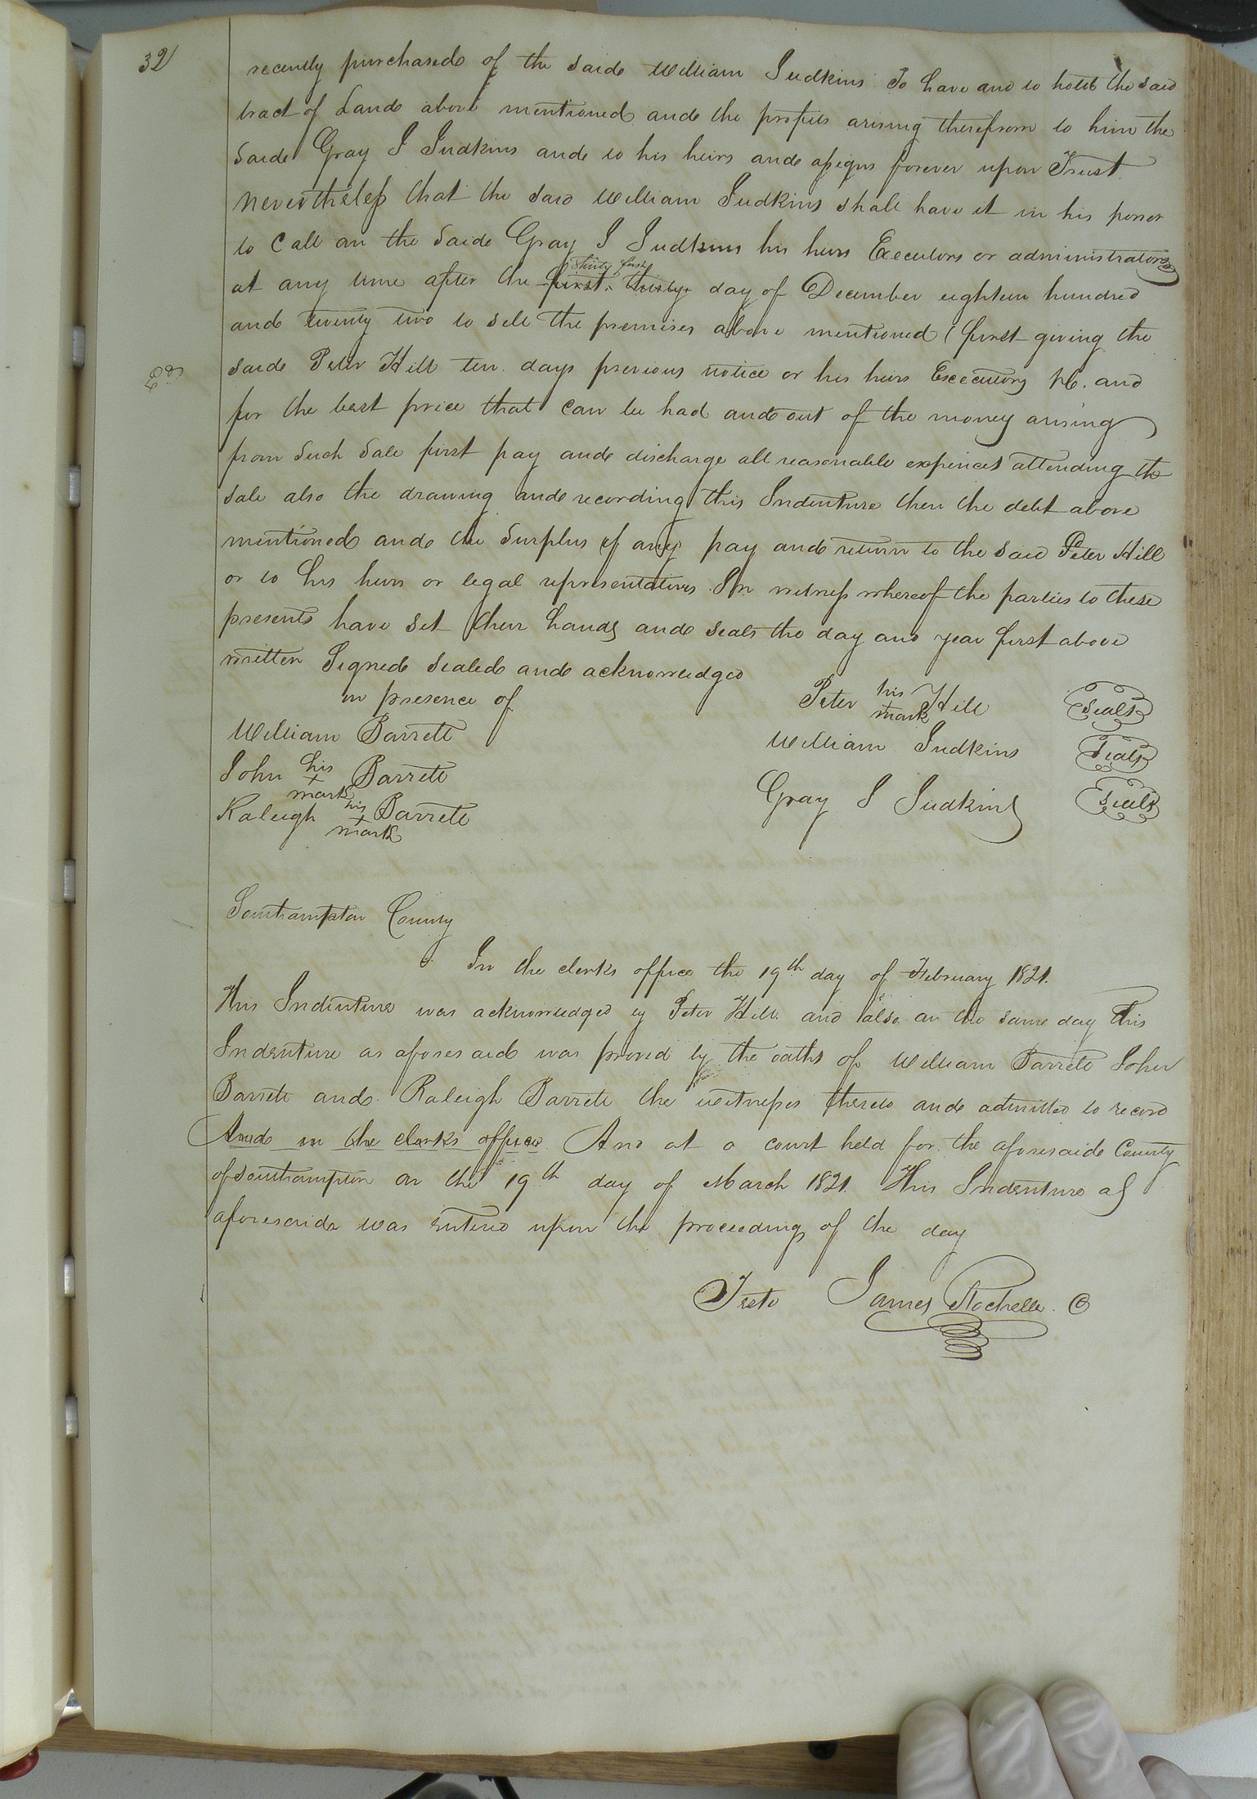 32
recently purchased of the said William Judkins To have and to hold the said
tract of Land above mentioned and the profits arising therefrom to him the
said Gray J Judkins and to his heirs and assigns forever upon Trust
nevertheless that the said William Judkins shall have it in his power
to Call on the said Gray J Judkins his heirs Executors or administrators
thirty first
at any time after the first thirty day of December eighteen hundred
and twenty two to sell the premises above mentioned (first giving the
said Peter Hill ten days previous notice or his heirs Executors &c. and
for the best price that can be had and out of the money arising
from such sale first pay and discharge all reasonable expences attending the
sale also the drawing and recording this Indenture then the debt above
mentioned and the Surplus if any pay and return to the said Peter Hill
or to his heirs or legal representatives In witness whereof the parties to these
presents have set their hands and seals the day and year first above
written Signed Sealed and acknowledged
in presence of
William Barrett
John his + mark Barrett
Raleigh his + mark Barrett
Peter his + mark Hill Seal
William Judkins Seal
Gray J Judkins Seal
Southampton County
In the clerks office the 19th day of February 1821.
This Indenture was acknowledged by Peter Hill and also on the same day this
Indenture as aforesaid was proved by the oaths of William Barrett John
Barrett and Raleigh Barrett the witnesses thereto and admitted to record
And in the clerks office And at a court held for the aforesaid County
of Southampton on the 19th day of March 1821 This Indenture as
aforesaid was entered upon the proceedings of the day
Teste James Rochelle C